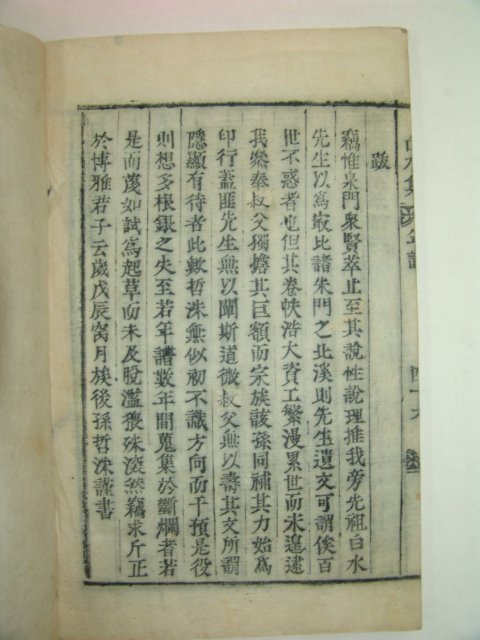 跋
竊惟泉門衆賢萃止至其說性說理推我旁先祖白水
先生以爲最比諸朱門之北溪則先生遺文可謂俟百
世不惑者也但其卷帙浩大資工繁漫累世而未遑逮
我槃奉叔父獨擔其巨額而宗族該孫同補其力始爲
印行蓋匪先生無以闡斯道微叔父無以壽其文所謂
隱顯有待者此歟哲洙無似初不識方向而干預是役
則想多根銀之失至若年譜數年間蒐集於斷爛者若
是而蔑如試爲起草而未及脫濫猥殊深然竊求斤正
於博雅君子云歲戊辰窩月族後孫哲洙謹書
年譜
四十六